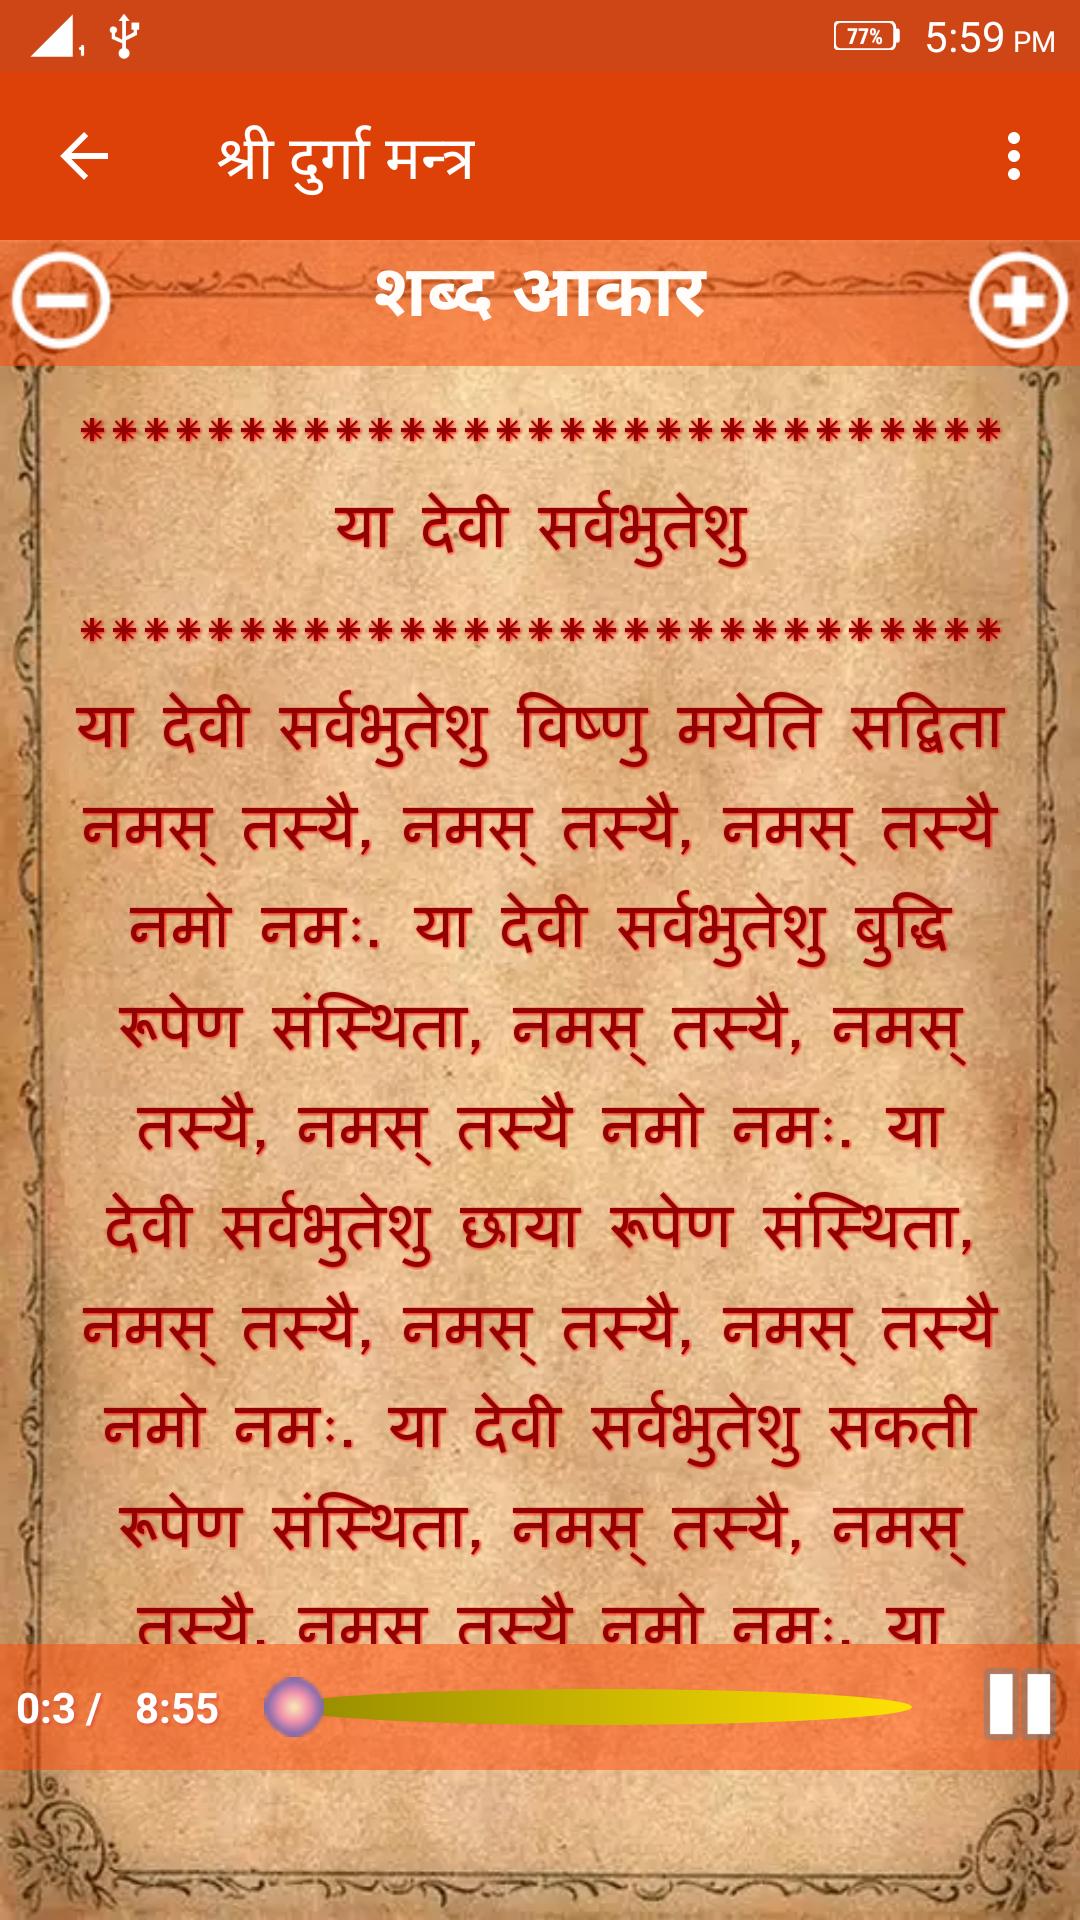 77% 5:59 PM
श्री दुर्गा मन्त्र
शब्द आकार
*****************************
या देवी सर्वभुतेशु
*****************************
या देवी सर्वभुतेशु विष्णु मयेति सद्विता
नमस् तस्यै, नमस् तस्यै, नमस् तस्यै
नमो नमः. या देवी सर्वभुतेशु बुद्धि
रूपेण संस्थिता, नमस् तस्यै, नमस्
तस्यै, नमस् तस्यै नमो नमः. या
देवी सर्वभुतेशु छाया रूपेण संस्थिता,
नमस् तस्यै, नमस् तस्यै, नमस् तस्यै
नमो नमः. या देवी सर्वभुतेशु सकती
रूपेण संस्थिता, नमस् तस्यै, नमस्
तस्यै, नमस् तस्यै नमो नमः. या
0:3 / 8:55